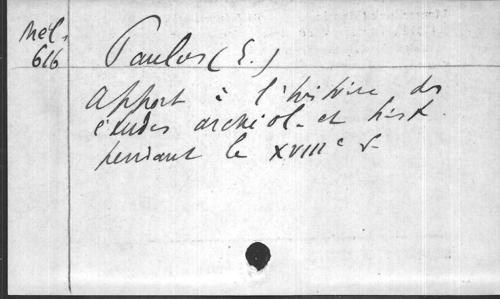 Mél.
616
Paulus (E.)
Apport à l'histoire des
études archéol. et hist.
pendant le XVIIIe s.